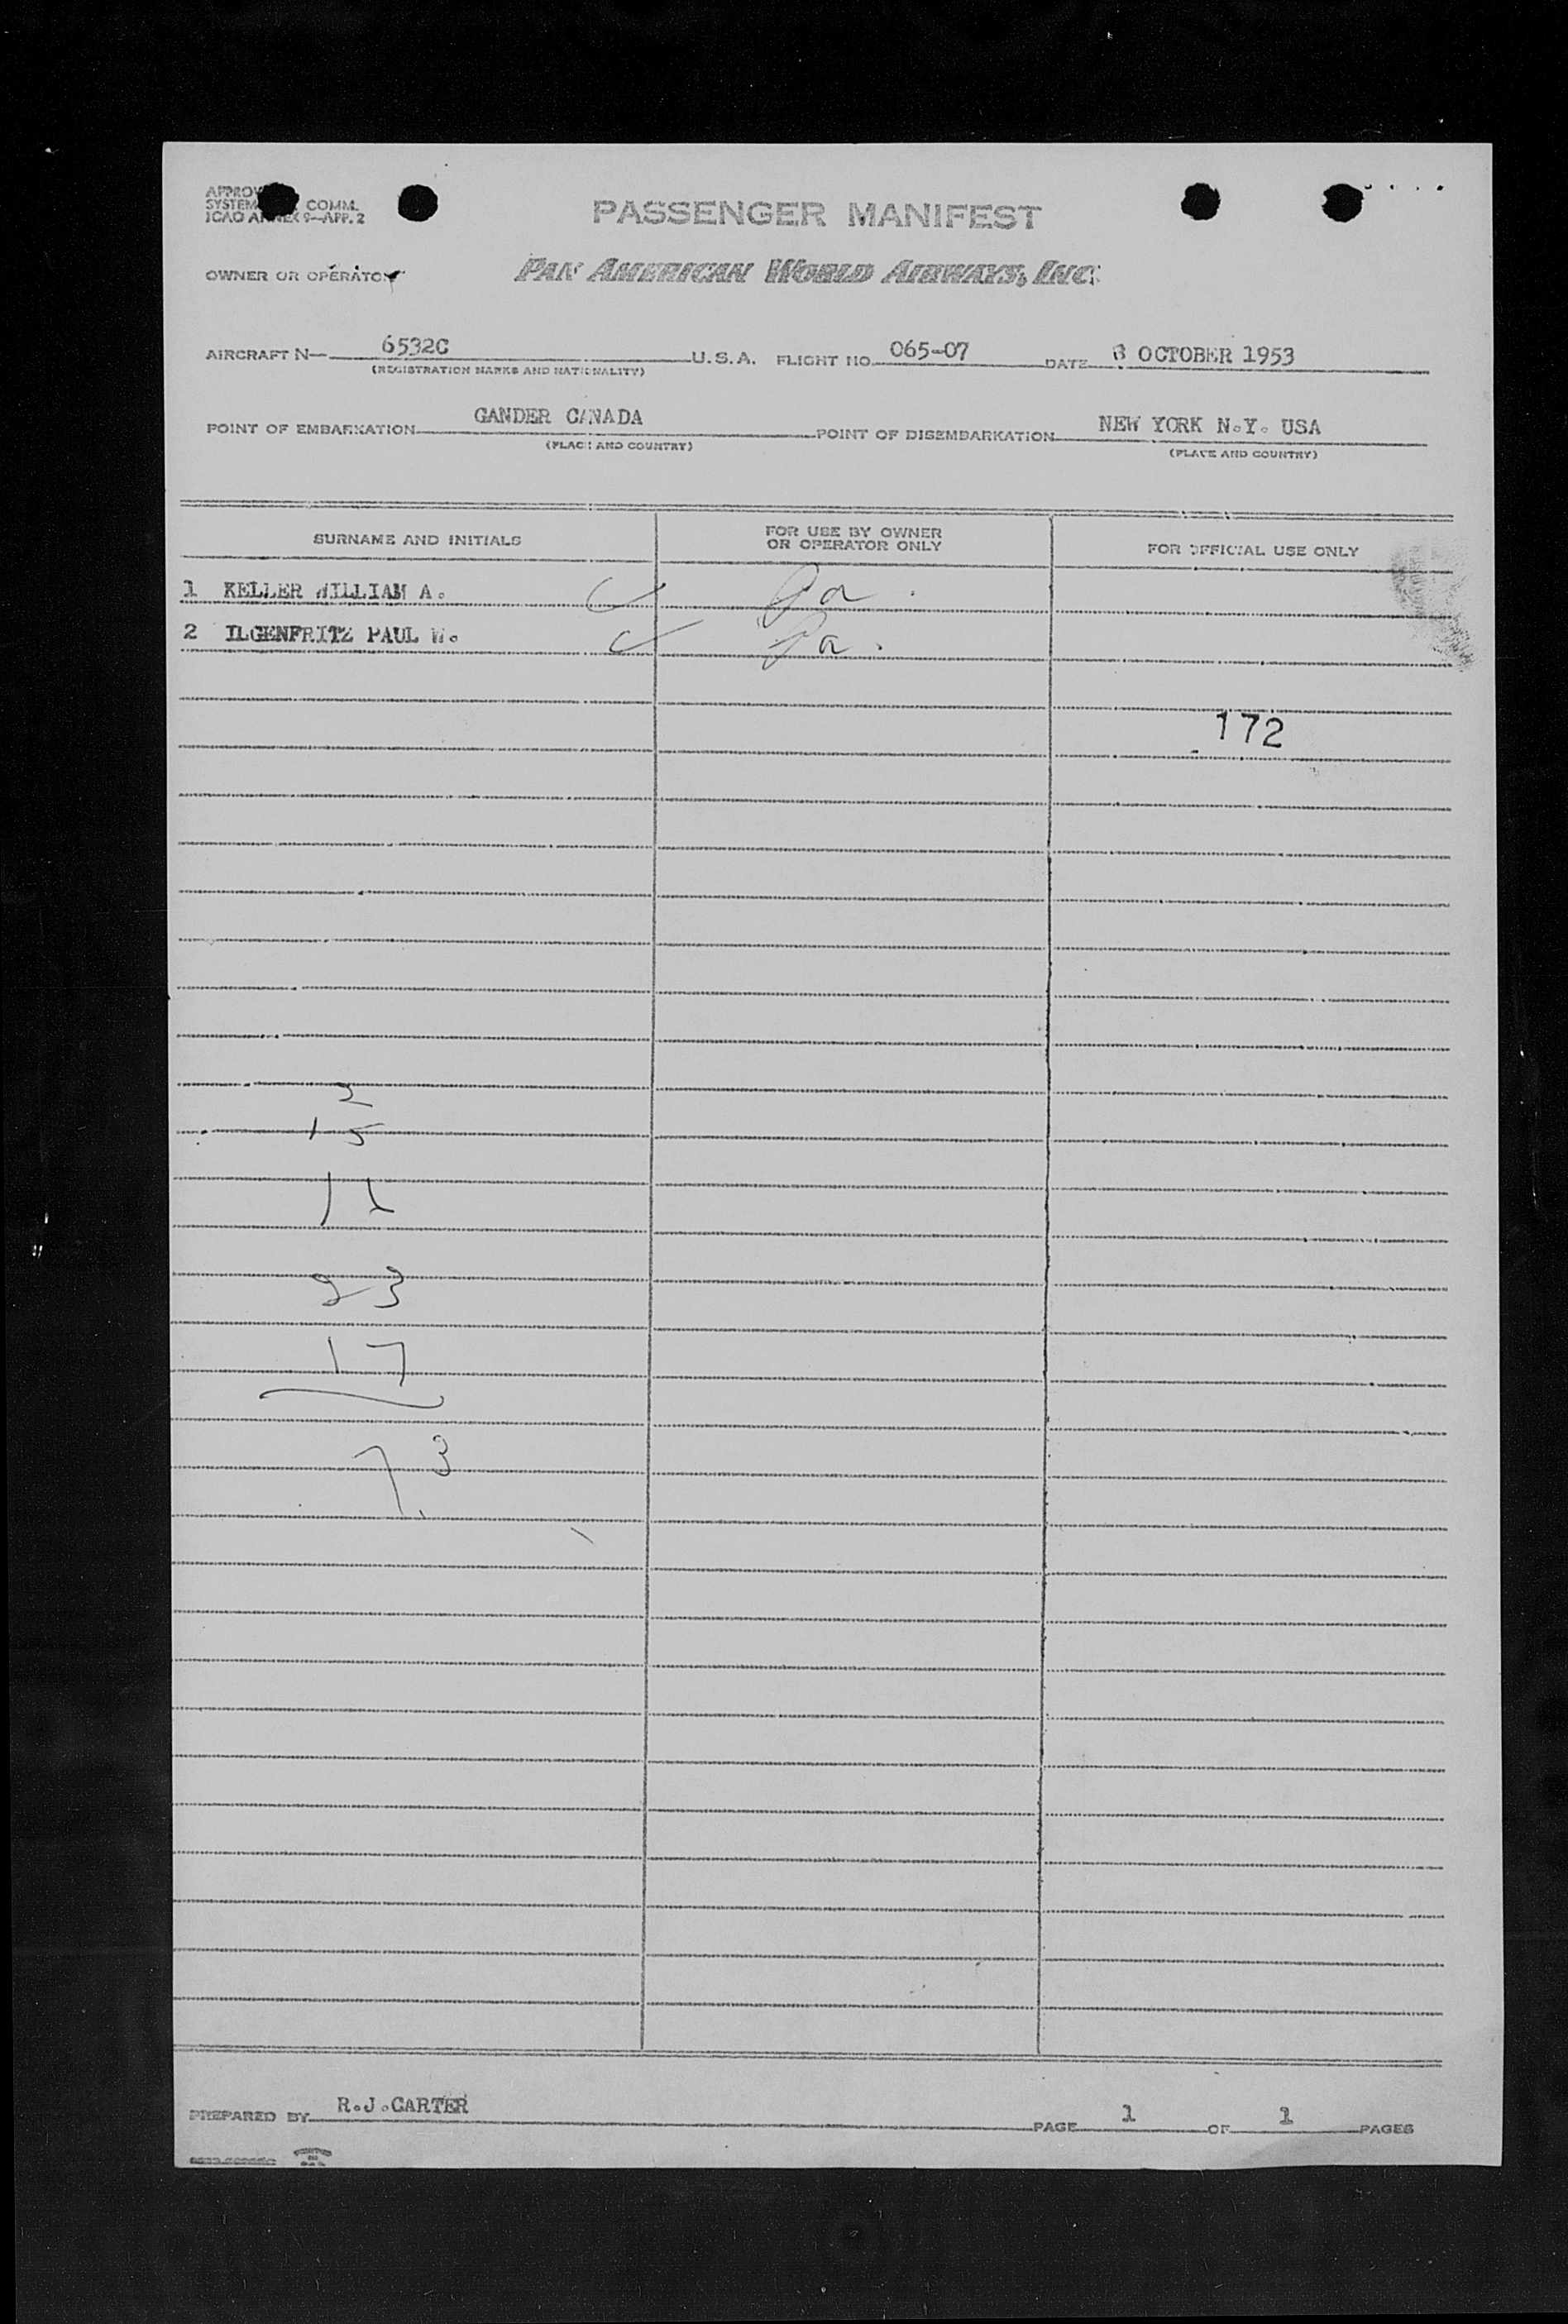 APPROV
SYSTEM COMM.
ICAO ANNEX 9—APP. 2
PASSENGER MANIFEST
OWNER OR OPERATOR
PAN AMERICAN WORLD AIRWAYS, INC.
AIRCRAFT N— 6532C U.S.A. FLIGHT NO. 065-07 DATE 8 OCTOBER 1953
(REGISTRATION MARKS AND NATIONALITY)
POINT OF EMBARKATION GANDER CANADA POINT OF DISEMBARKATION NEW YORK N.Y. USA
(PLACE AND COUNTRY) (PLACE AND COUNTRY)
SURNAME AND INITIALS
FOR USE BY OWNER
OR OPERATOR ONLY
FOR OFFICIAL USE ONLY
1 KELLER WILLIAM A.
2 ILGENFRITZ PAUL W.
172
2
15
23
17
73
PREPARED BY R.J.CARTER PAGE 1 OF 1 PAGES